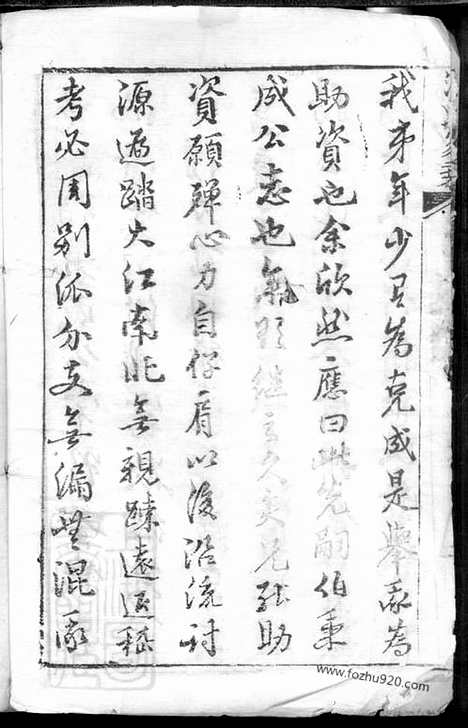 我弟年少召為克成是舉承為
助資也余欣然應曰此先嗣伯秉
成公志也無 繼 久矣兄能助
資願殫心力自仔肩以後沿流討
源遍踏大江南北無親疎遠近稽
考必周別派分支無漏無混承
www.fozhu920.com